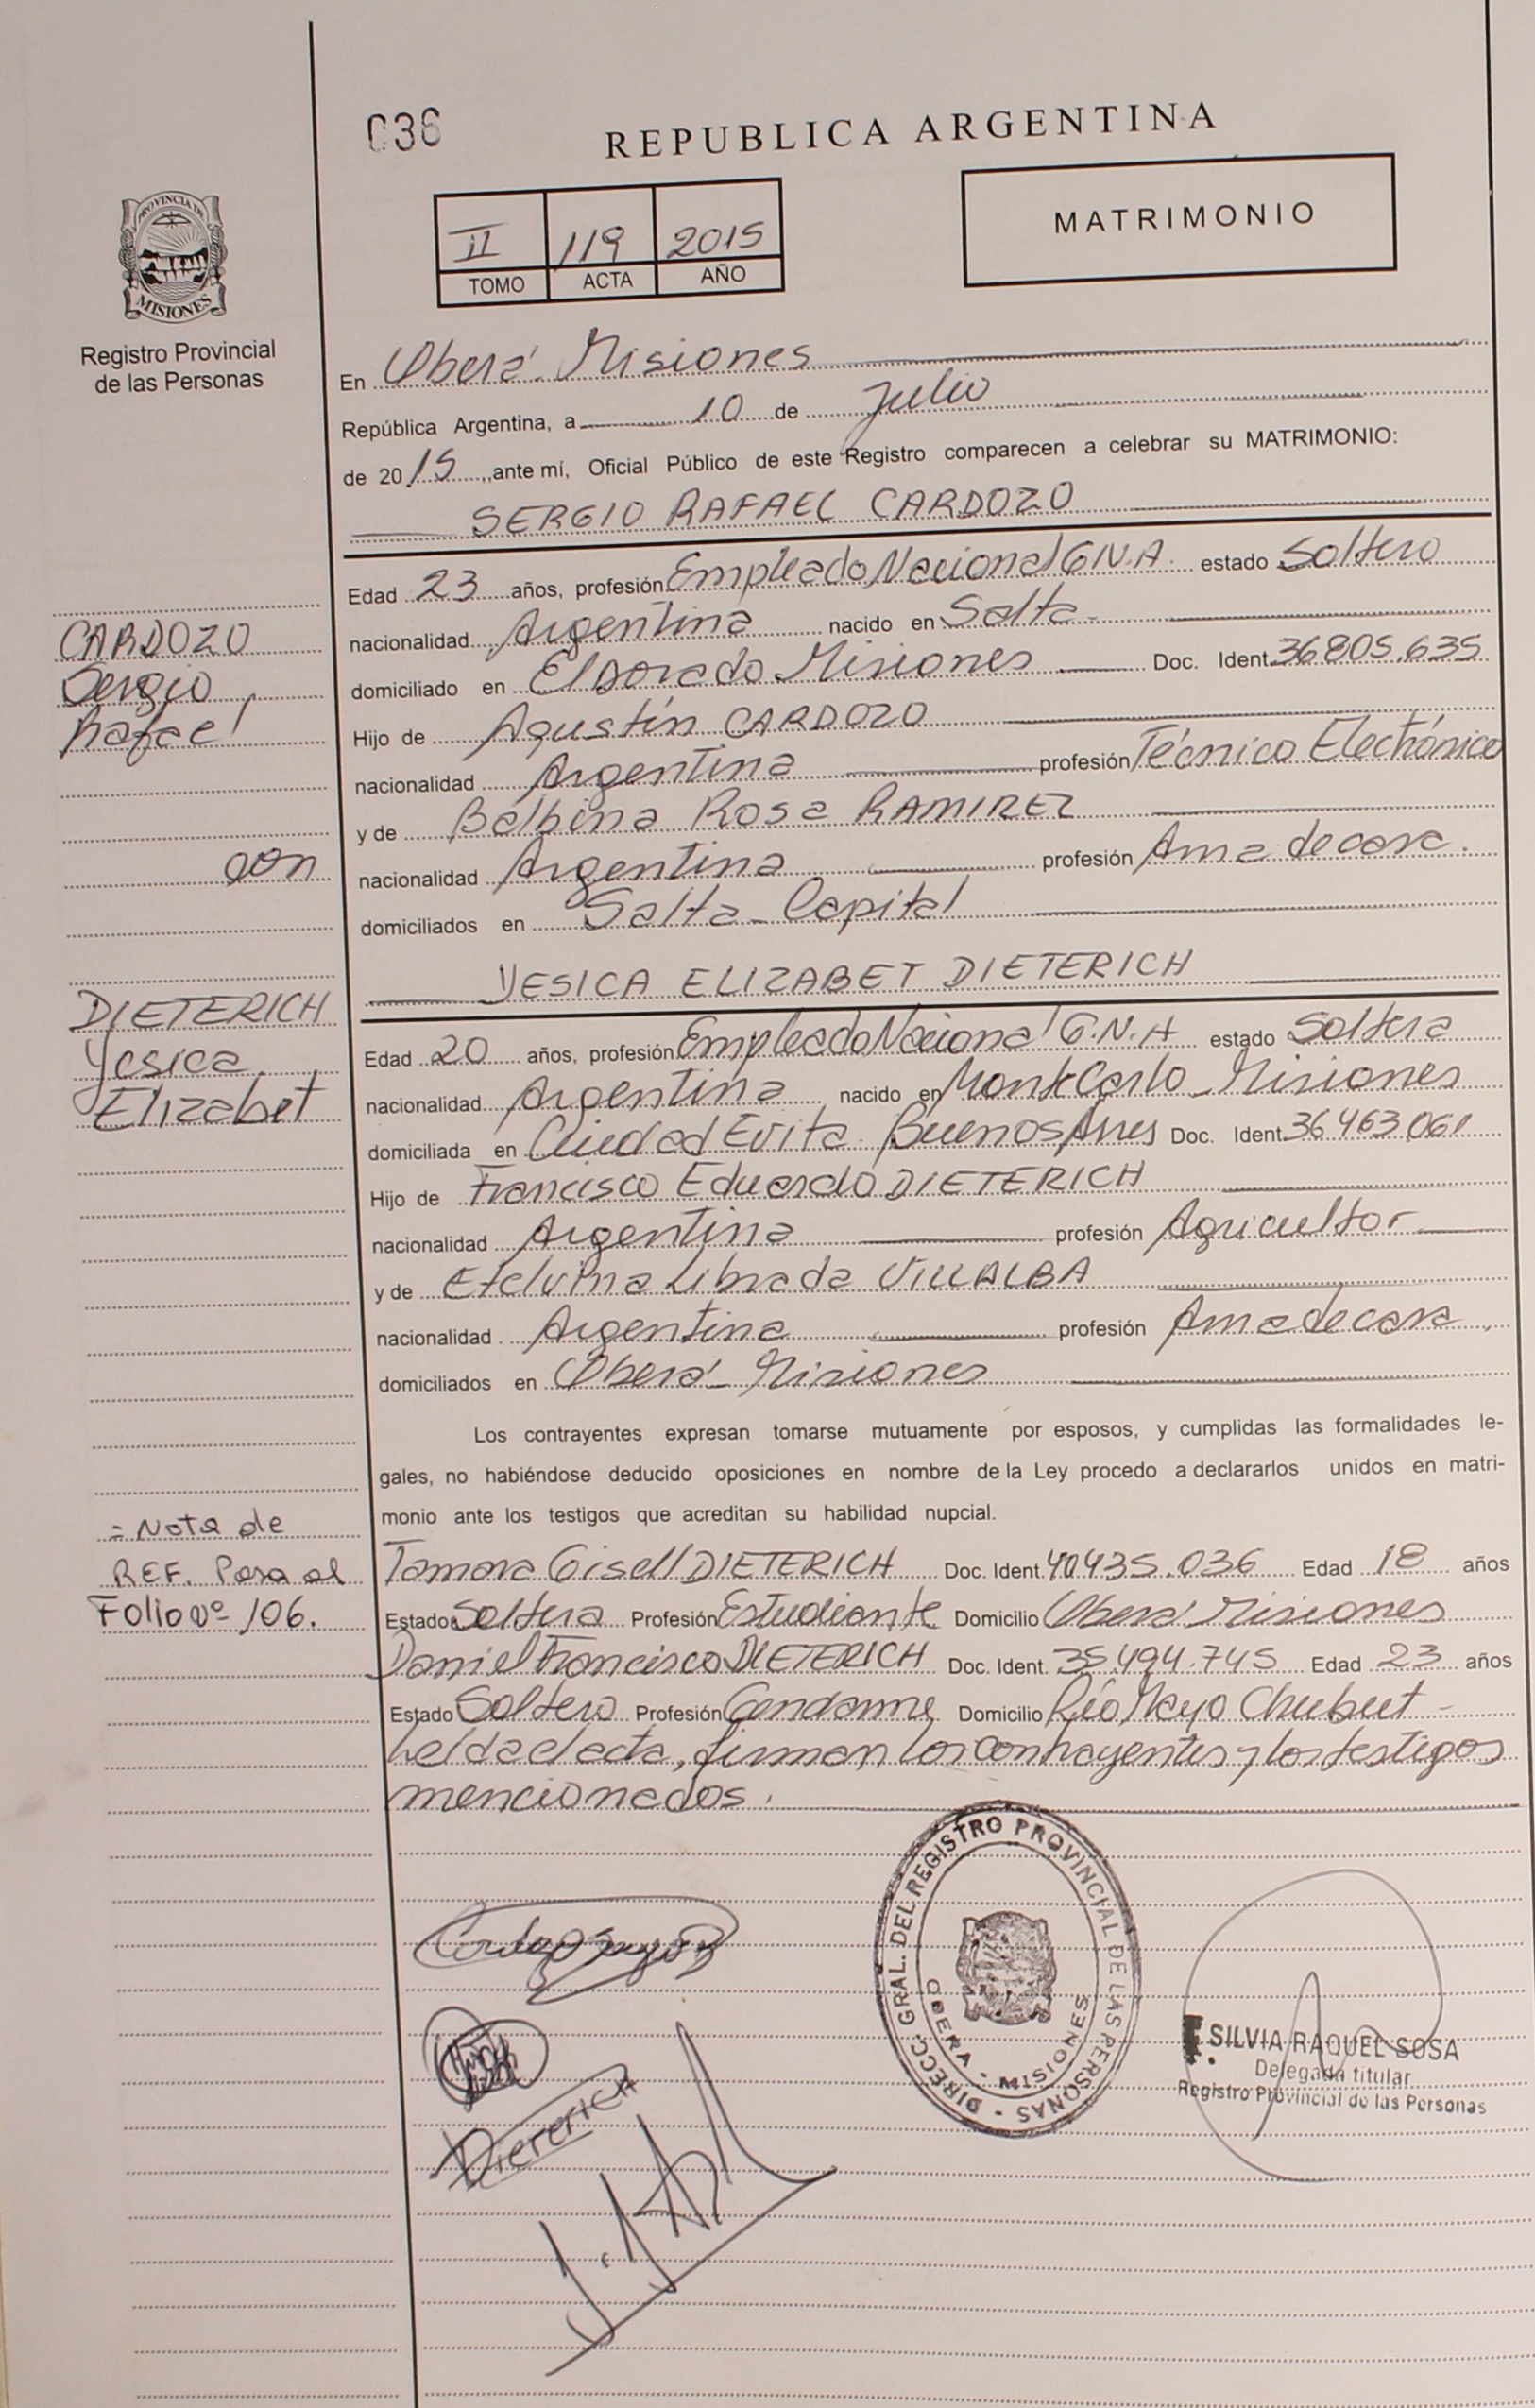 036
REPUBLICA ARGENTINA
PROVINCIA DE
MISIONES
Registro Provincial
de las Personas
II 119 2015
TOMO ACTA AÑO
MATRIMONIO
En Oberá - Misiones
República Argentina, a 10 de Julio
de 2015, ante mí, Oficial Público de este Registro comparecen a celebrar su MATRIMONIO:
SERGIO RAFAEL CARDOZO
Edad 23 años, profesión Empleado Nacional G.N.A. estado Soltero
nacionalidad Argentina nacido en Salta
domiciliado en ElDorado Misiones Doc. Ident 36805.635
Hijo de Agustín CARDOZO
nacionalidad Argentina profesión Técnico Electrónico
y de Balbina Rosa RAMIREZ
nacionalidad Argentina profesión Ama de casa.
domiciliados en Salta - Capital
YESICA ELIZABET DIETERICH
Edad 20 años, profesión Empleado Nacional G.N.A estado Soltera
nacionalidad Argentina nacido en MonteCarlo - Misiones
domiciliada en Ciudad Evita - Buenos Aires Doc. Ident. 36463061
Hijo de Francisco Eduardo DIETERICH
nacionalidad Argentina profesión Agricultor
y de Etelvina Librada VILLALBA
nacionalidad Argentina profesión Ama de casa
domiciliados en Oberá - Misiones
Los contrayentes expresan tomarse mutuamente por esposos, y cumplidas las formalidades le-
gales, no habiéndose deducido oposiciones en nombre de la Ley procedo a declararlos unidos en matri-
monio ante los testigos que acreditan su habilidad nupcial.
Tamara Gisell DIETERICH Doc. Ident. 40435.036 Edad 18 años
Estado Soltera Profesión Estudiante Domicilio Oberá Misiones
Daniel Francisco DIETERICH Doc. Ident. 35.494.745 Edad 23 años
Estado Soltero Profesión Gendarme Domicilio Río Mayo Chubut -
Leída el acta, firman los contrayentes y los testigos
mencionados.
CARDOZO
Sergio
Rafael
con
DIETERICH
Yesica
Elizabet
= Nota de
REF. Pasa al
Folio Nº 106.
DIRECC. GRAL. DEL REGISTRO PROVINCIAL DE LAS PERSONAS -
OBERA - MISIONES
SILVIA RAQUEL SOSA
Delegada titular
Registro Provincial de las Personas
DIETERICH